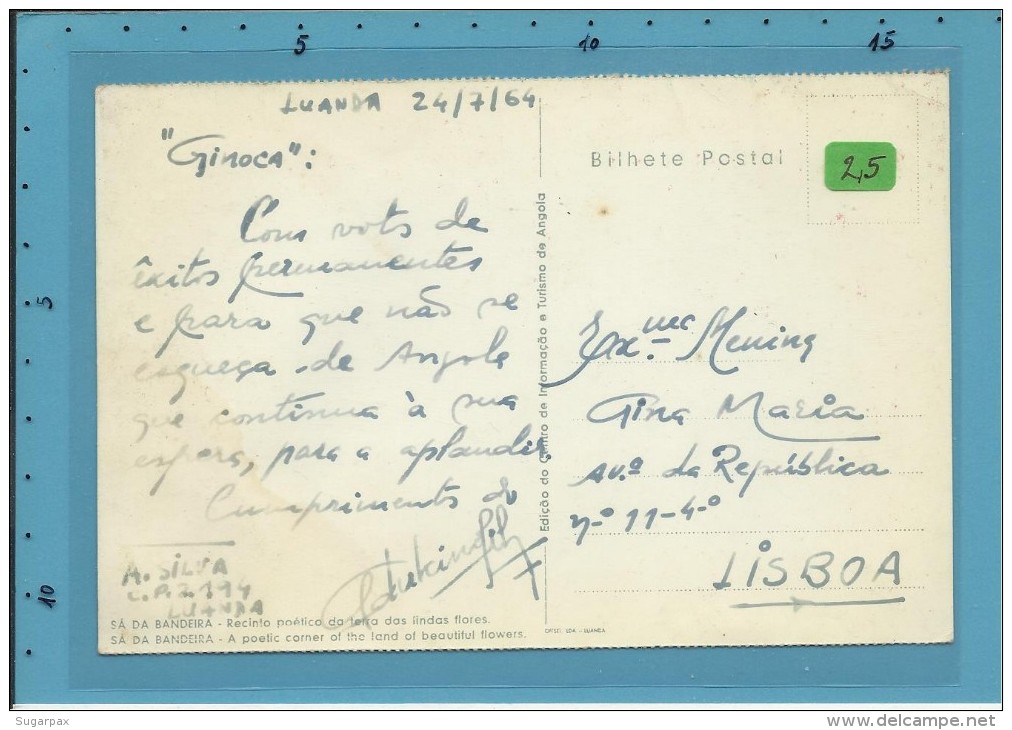 LUANDA 24/7/64
"Ginoca":
Com votos de
êxitos permanentes
e para que não se
esqueça de Angola
que continua à sua
espera, para a aplaudir.
Cumprimentos do
A. SILVA
C.P. 2194
LUANDA
SÁ DA BANDEIRA - Recinto poético da terra das lindas flores.
SÁ DA BANDEIRA - A poetic corner of the land of beautiful flowers.
Edição do Centro de Informação e Turismo de Angola
Bilhete Postal
2,5
Ex.ma Menina
Gina Maria
Av.ª da República
n.º 11-4.º
LISBOA
5
10
15
5
10
Sugarpax
www.delcampe.net